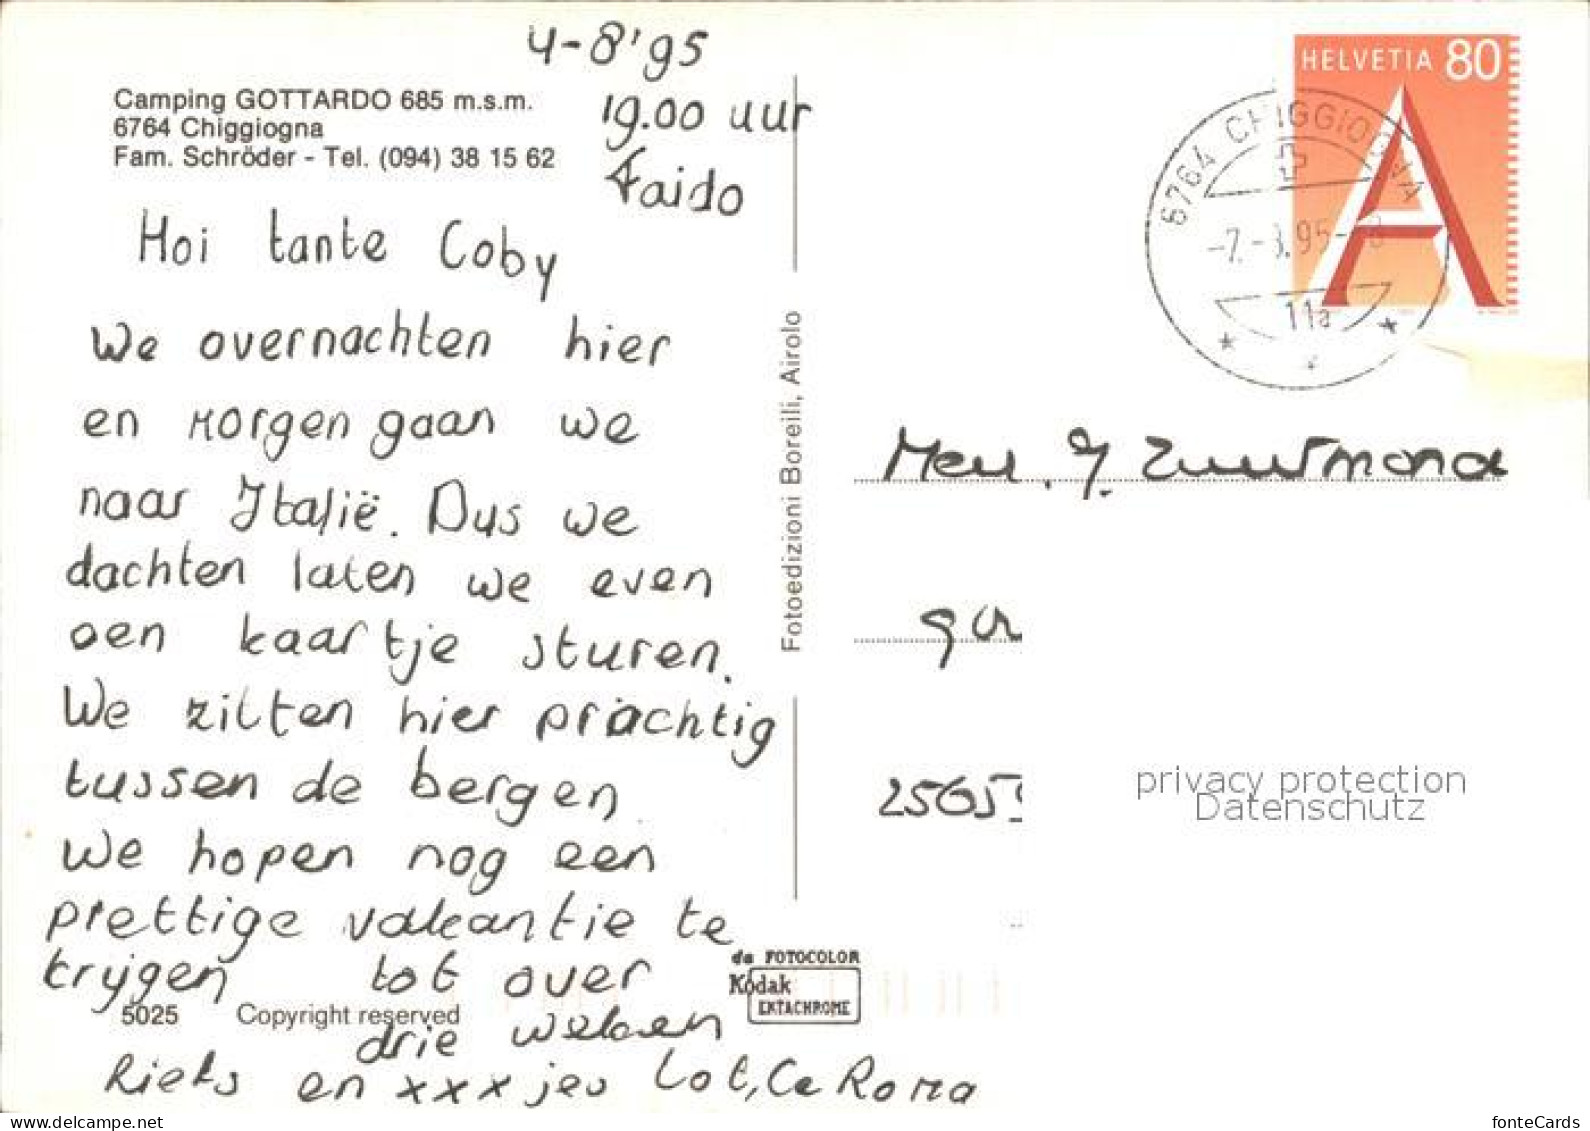 4-8'95
19.00 uur
Faido
Camping GOTTARDO 685 m.s.m.
6764 Chiggiogna
Fam. Schröder - Tel. (094) 38 15 62
Hoi tante Coby
We overnachten hier
en morgen gaan we
naar Italië. Dus we
dachten laten we even
een kaartje sturen.
We zitten hier prachtig
tussen de bergen
We hopen nog een
prettige vakantie te
krijgen tot over
drie weken
Rieks en xxxjes Lot, Ce Roma
5025 Copyright reserved
Fotoedizioni Boreili, Airolo
da FOTOCOLOR
Kodak
EKTACHROME
HELVETIA 80
A
6764 CHIGGIOGNA
-7.-8.95-8
11a
Mev. J. Zuurmond
2565
privacy protection
Datenschutz
fonteCards